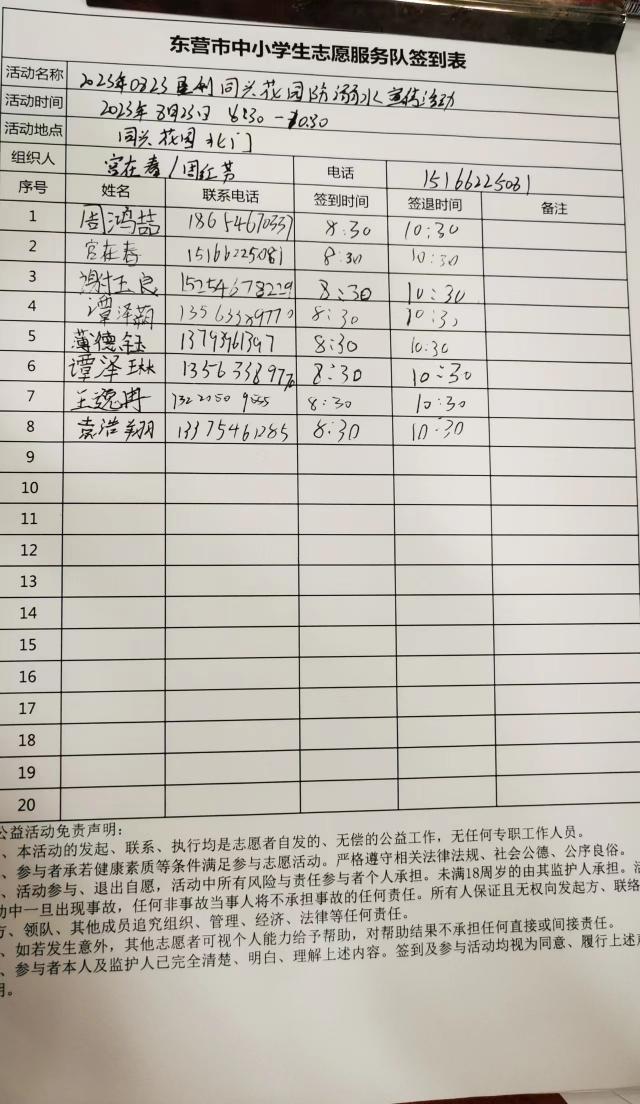 东营市中小学生志愿服务队签到表
活动名称 2023年0823垦利同兴花园防溺水宣传活动
活动时间 2023年8月23日 8:30-10:30
活动地点 同兴花园北门
组织人 宫在春/周红芳 电话 15166225081
序号 姓名 联系电话 签到时间 签退时间 备注
1 周鸿喆 18654670337 8:30 10:30
2 宫在春 15166225081 8:30 10:30
3 谢玉良 15254678229 8:30 10:30
4 谭泽 13563389770 8:30 10:30
5 薄德钰 13793961397 8:30 10:30
6 谭泽琳 13563389770 8:30 10:30
7 王逸冉 8:30 10:30
8 袁浩翔 13375461285 8:30 10:30
9
10
11
12
13
14
15
16
17
18
19
20
公益活动免责声明：
、本活动的发起、联系、执行均是志愿者自发的、无偿的公益工作，无任何专职工作人员。
、参与者承若健康素质等条件满足参与志愿活动。严格遵守相关法律法规、社会公德、公序良俗。
、活动参与、退出自愿，活动中所有风险与责任参与者个人承担。未满18周岁的由其监护人承担。活
动中一旦出现事故，任何非事故当事人将不承担事故的任何责任。所有人保证且无权向发起方、联络
方、领队、其他成员追究组织、管理、经济、法律等任何责任。
、如若发生意外，其他志愿者可视个人能力给予帮助，对帮助结果不承担任何直接或间接责任。
、参与者本人及监护人已完全清楚、明白、理解上述内容。签到及参与活动均视为同意、履行上述声
明。